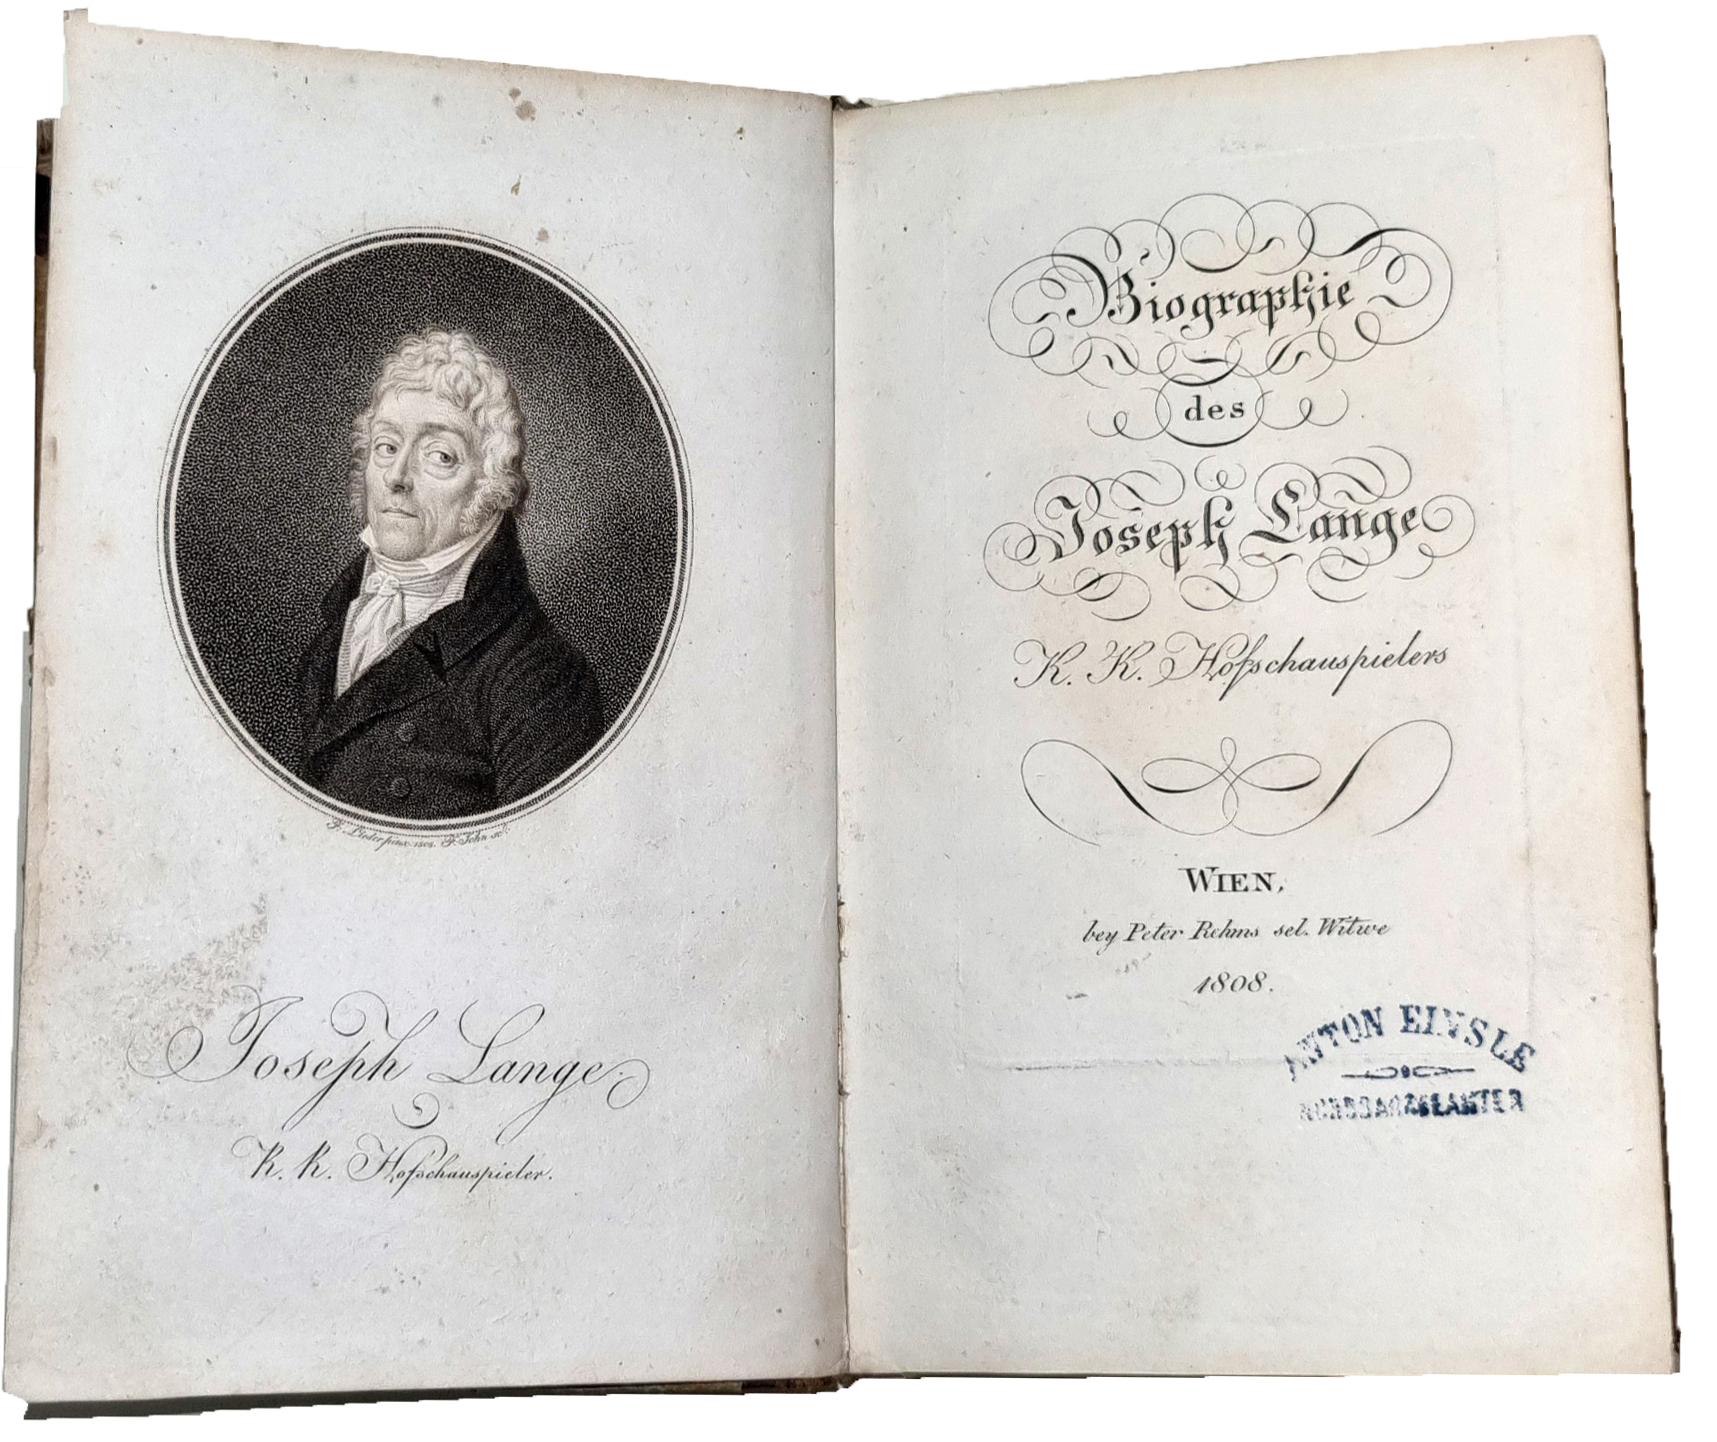 F. Lieder pinx. 1808. F. John sc.
Joseph Lange
K. K. Hofschauspieler.
Biographie
des
Joseph Lange
K. K. Hofschauspielers
WIEN,
bey Peter Rehms sel. Witwe
1808.
ANTON EINSLE